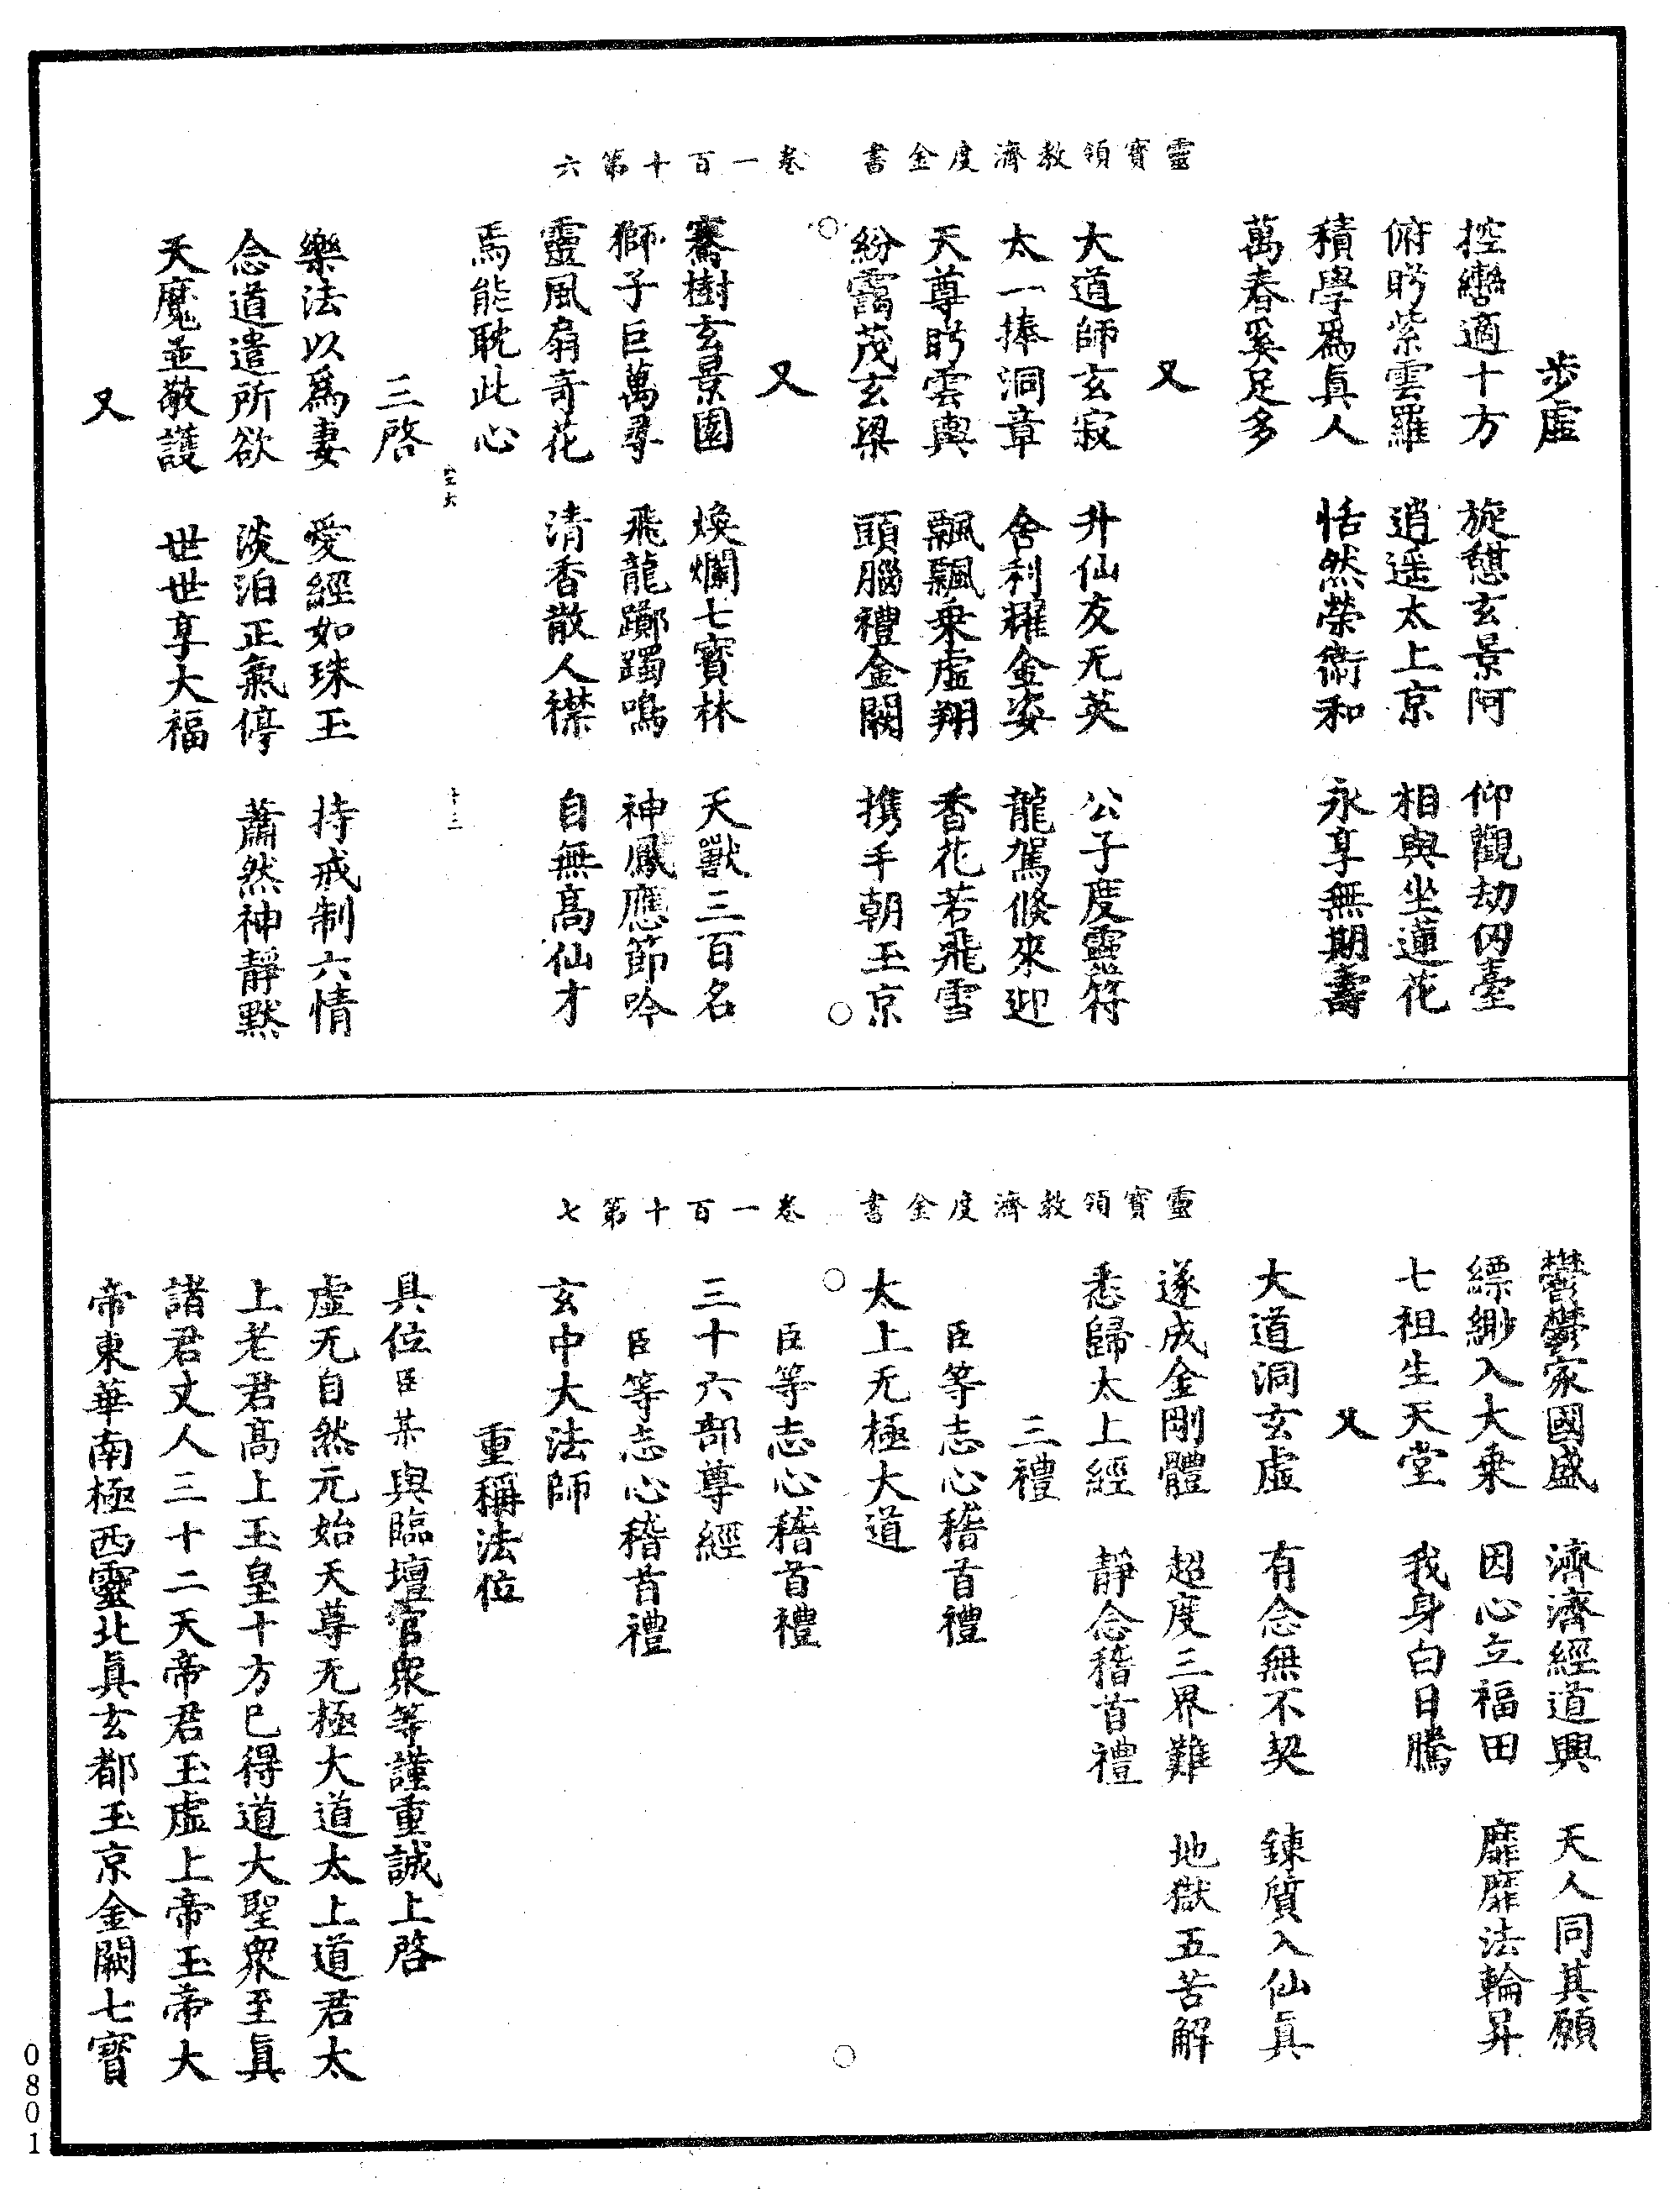 靈寶領教濟度金書　卷一百十第六
步虛
控轡適十方　旋憩玄景阿　仰觀劫仞臺
俯眄紫雲羅　逍遥太上京　相與坐蓮花
積學爲眞人　恬然榮衞和　永享無期壽
萬春奚足多
又
大道師玄寂　升仙友无英　公子度靈符
太一捧洞章　舍利耀金姿　龍駕倏來迎
天尊眄雲輿　飄飄乗虛翔　香花若飛雪
紛靄茂玄梁　頭腦禮金闕　携手朝玉京
又
騫樹玄景園　煥爛七寳林　天獸三百名
獅子巨萬尋　飛龍躑躅鳴　神鳳應節吟
靈風扇奇花　清香散人襟　自無高仙才
焉能耽此心
三啓
樂法以爲妻　愛經如珠玉　持戒制六情
念道遣所欲　淡泊正氣停　蕭然神靜默
天魔並敬護　世世享大福
又
靈寶領教濟度金書　卷一百十第七
鬱鬱家國盛　濟濟經道興　天人同其願
縹緲入大乗　因心立福田　靡靡法輪昇
七祖生天堂　我身白日騰
又
大道洞玄虛　有念無不契　鍊質入仙眞
遂成金剛體　超度三界難　地獄五苦解
悉歸太上經　靜念稽首禮
三禮
臣等志心稽首禮
太上无極大道
臣等志心稽首禮
三十六部尊經
臣等志心稽首禮
玄中大法師
重稱法位
具位臣某與臨壇官衆等謹重誠上啓
虛无自然元始天尊无極大道太上道君太
上老君高上玉皇十方已得道大聖衆至眞
諸君丈人三十二天帝君玉虛上帝玉帝大
帝東華南極西靈北眞玄都玉京金闕七寳
0801